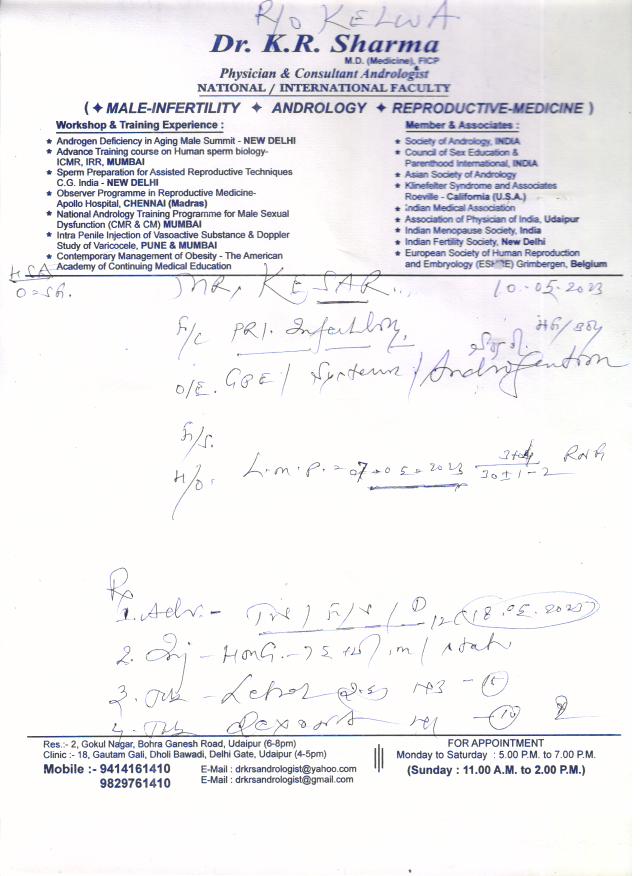 R/O KELWA
Dr. K.R. Sharma
M.D. (Medicine), FICP
Physician & Consultant Andrologist
NATIONAL / INTERNATIONAL FACULTY
( ✦ MALE-INFERTILITY ✦ ANDROLOGY ✦ REPRODUCTIVE-MEDICINE )
Workshop & Training Experience :
★ Androgen Deficiency in Aging Male Summit - NEW DELHI
★ Advance Training course on Human sperm biology-
ICMR, IRR, MUMBAI
★ Sperm Preparation for Assisted Reproductive Techniques
C.G. India - NEW DELHI
★ Observer Programme in Reproductive Medicine-
Apollo Hospital, CHENNAI (Madras)
★ National Andrology Training Programme for Male Sexual
Dysfunction (CMR & CM) MUMBAI
★ Intra Penile Injection of Vasoactive Substance & Doppler
Study of Varicocele, PUNE & MUMBAI
★ Contemporary Management of Obesity - The American
Academy of Continuing Medical Education
Member & Associates :
★ Society of Andrology, INDIA
★ Council of Sex Education &
Parenthood International, INDIA
★ Asian Society of Andrology
★ Klinefelter Syndrome and Associates
Roeville - California (U.S.A.)
★ Indian Medical Association
★ Association of Physician of India, Udaipur
★ Indian Menopause Society, India
★ Indian Fertility Society, New Delhi
★ European Society of Human Reproduction
and Embryology (ESHRE) Grimbergen, Belgium
HSA
MR, KESAR.. 10-05-2023
F/C PRI. Infertility,
O/E. GPE / Systemic /
F/S.
H/O. L.m.P. = 07-05-2023 30±1-2
Rx
1. Adv. - TVS / F/S / D 12 (18.05.2023)
2. Inj - HMG - 75 im
3. Tab - Letroz
4. Tab
Res.:- 2, Gokul Nagar, Bohra Ganesh Road, Udaipur (6-8pm)
Clinic :- 18, Gautam Gali, Dholi Bawadi, Delhi Gate, Udaipur (4-5pm)
Mobile :- 9414161410
9829761410
E-Mail : drkrsandrologist@yahoo.com
E-Mail : drkrsandrologist@gmail.com
FOR APPOINTMENT
Monday to Saturday : 5.00 P.M. to 7.00 P.M.
(Sunday : 11.00 A.M. to 2.00 P.M.)